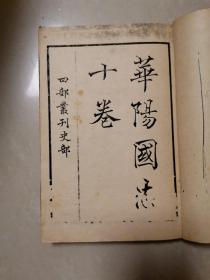 華陽國志
十卷
四部叢刊史部